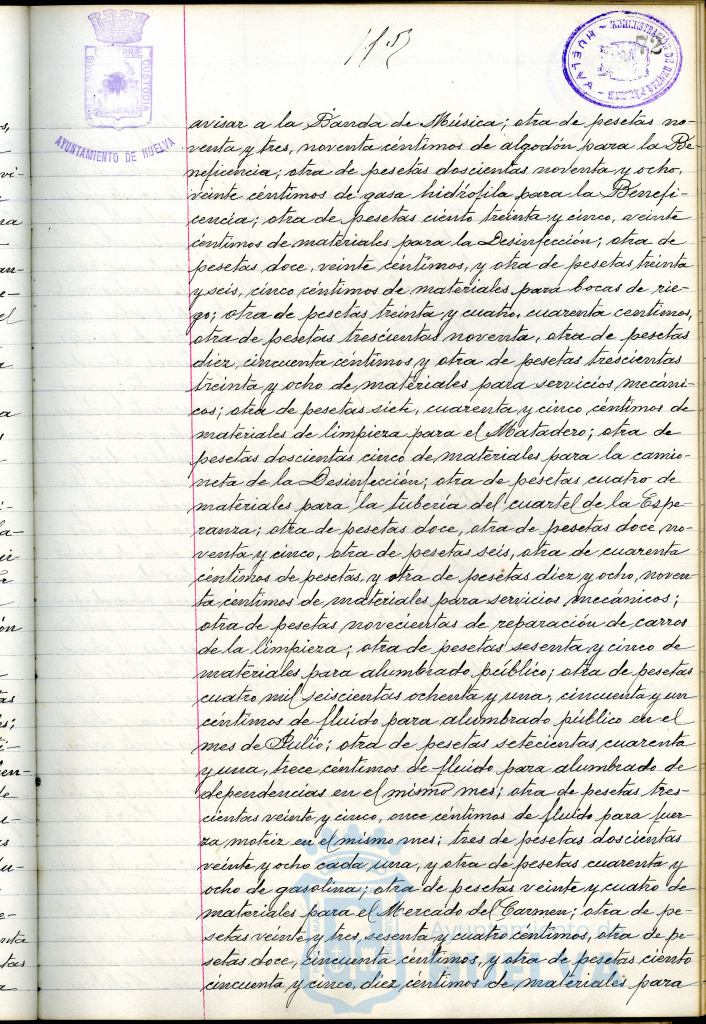 115
AYUNTAMIENTO DE HUELVA
ADMINISTRACIÓN DE
HUELVA
avisar a la Banda de Música; otra de pesetas no-
venta y tres, noventa céntimos de algodón para la Be-
neficencia; otra de pesetas doscientas noventa y ocho,
veinte céntimos de gasa hidrófila para la Benefi-
cencia; otra de pesetas ciento treinta y cinco, veinte
céntimos de materiales para la Desinfección; otra de
pesetas doce, veinte céntimos, y otra de pesetas treinta
y seis, cinco céntimos de materiales para bocas de rie-
go; otra de pesetas treinta y cuatro, cuarenta centimos,
otra de pesetas trescientas noventa, otra de pesetas
diez, cincuenta céntimos y otra de pesetas trescientas
treinta y ocho de materiales para servicios mecáni-
cos; otra de pesetas siete, cuarenta y cinco céntimos de
materiales de limpieza para el Matadero; otra de
pesetas doscientas cinco de materiales para la camio-
neta de la Desinfección; otra de pesetas cuatro de
materiales para la tubería del cuartel de la Espe-
ranza; otra de pesetas doce, otra de pesetas doce no-
venta y cinco, otra de pesetas seis, otra de cuarenta
céntimos de pesetas, y otra de pesetas diez y ocho, noven-
ta céntimos de materiales para servicios mecánicos;
otra de pesetas novecientas de reparación de carros
de la limpieza; otra de pesetas sesenta y cinco de
materiales para alumbrado público; otra de pesetas
cuatro mil seiscientas ochenta y una, cincuenta y un
céntimos de fluido para alumbrado público en el
mes de Julio; otra de pesetas setecientas cuarenta
y una, trece céntimos de fluido para alumbrado de
dependencias en el mismo mes; otra de pesetas tres-
cientas veinte y cinco, once céntimos de fluido para fuer-
za motriz en el mismo mes; tres de pesetas doscientas
veinte y ocho cada una, y otra de pesetas cuarenta y
ocho de gasolina; otra de pesetas veinte y cuatro de
materiales para el Mercado del Carmen; otra de pe-
setas veinte y tres, sesenta y cuatro centimos, otra de pe-
setas doce, cincuenta céntimos, y otra de pesetas ciento
cincuenta y cinco, diez céntimos de materiales para
Ayuntamiento de
HUELVA